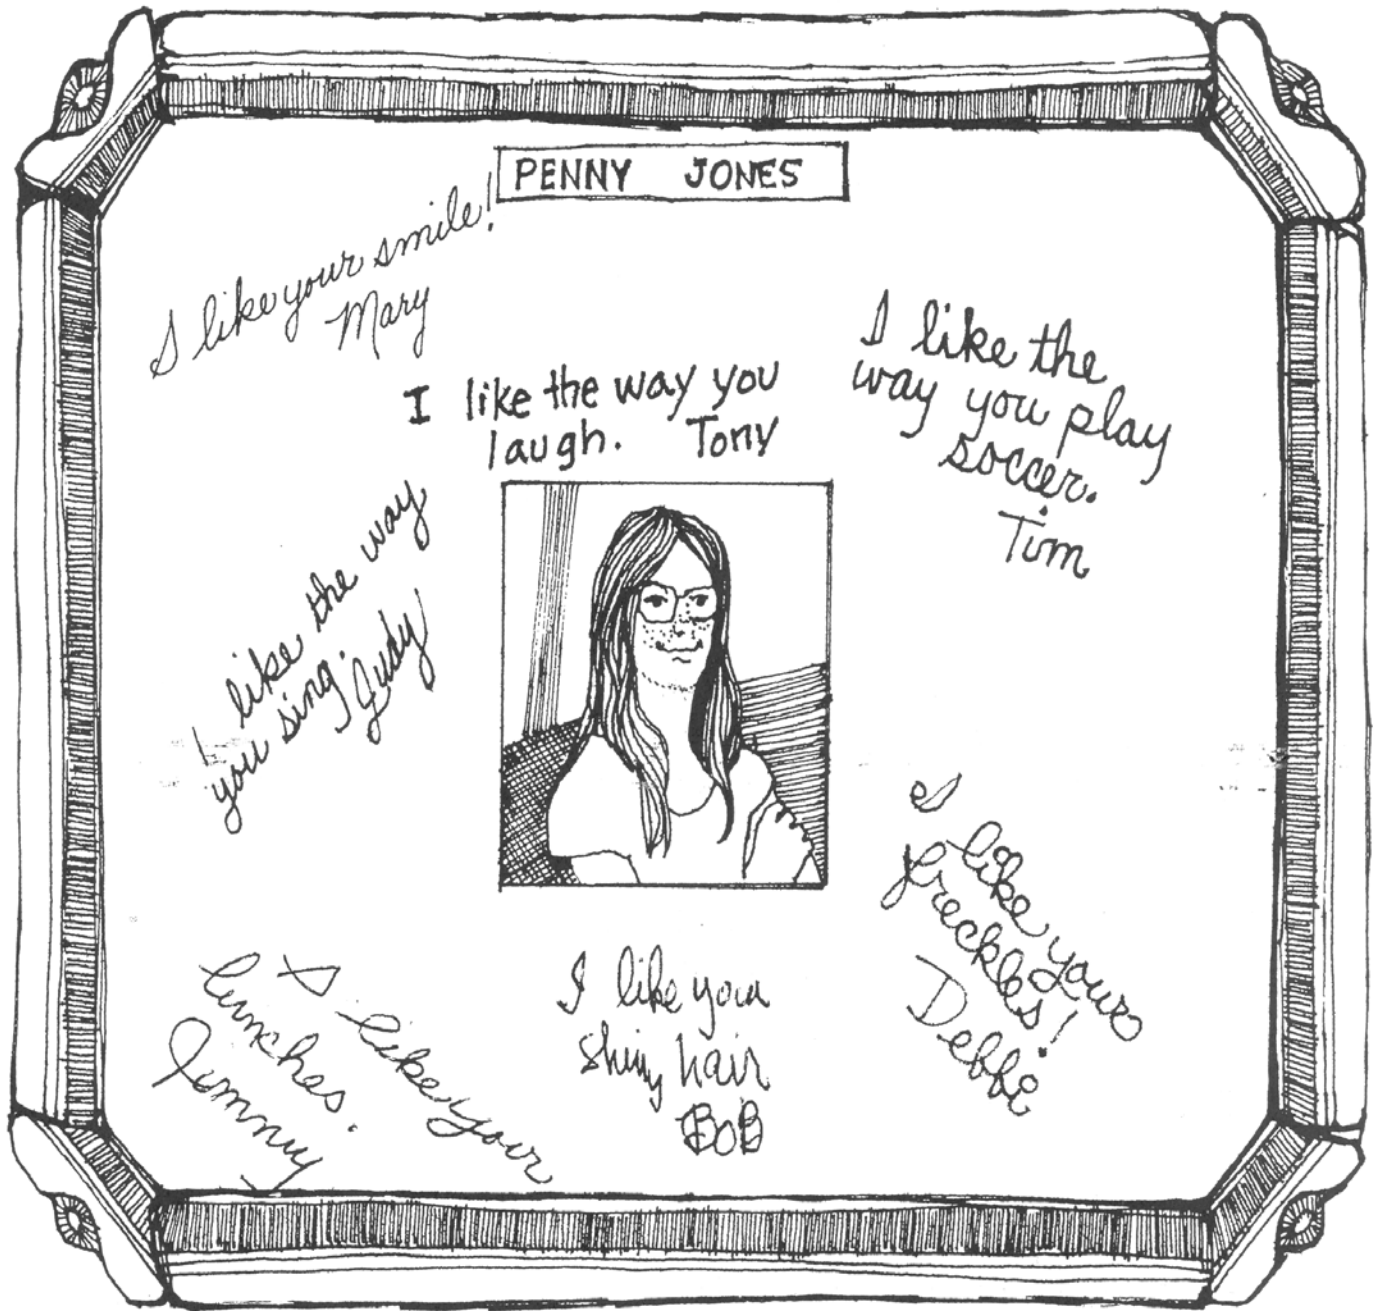 PENNY JONES
I like your smile!
Mary
I like the way you
laugh. Tony
I like the
way you play
soccer.
Tim
I like the way
you sing.
Judy
I like your
freckles!
Debbi
I like your
lunches.
Jimmy
I like your
shiny hair
BOB